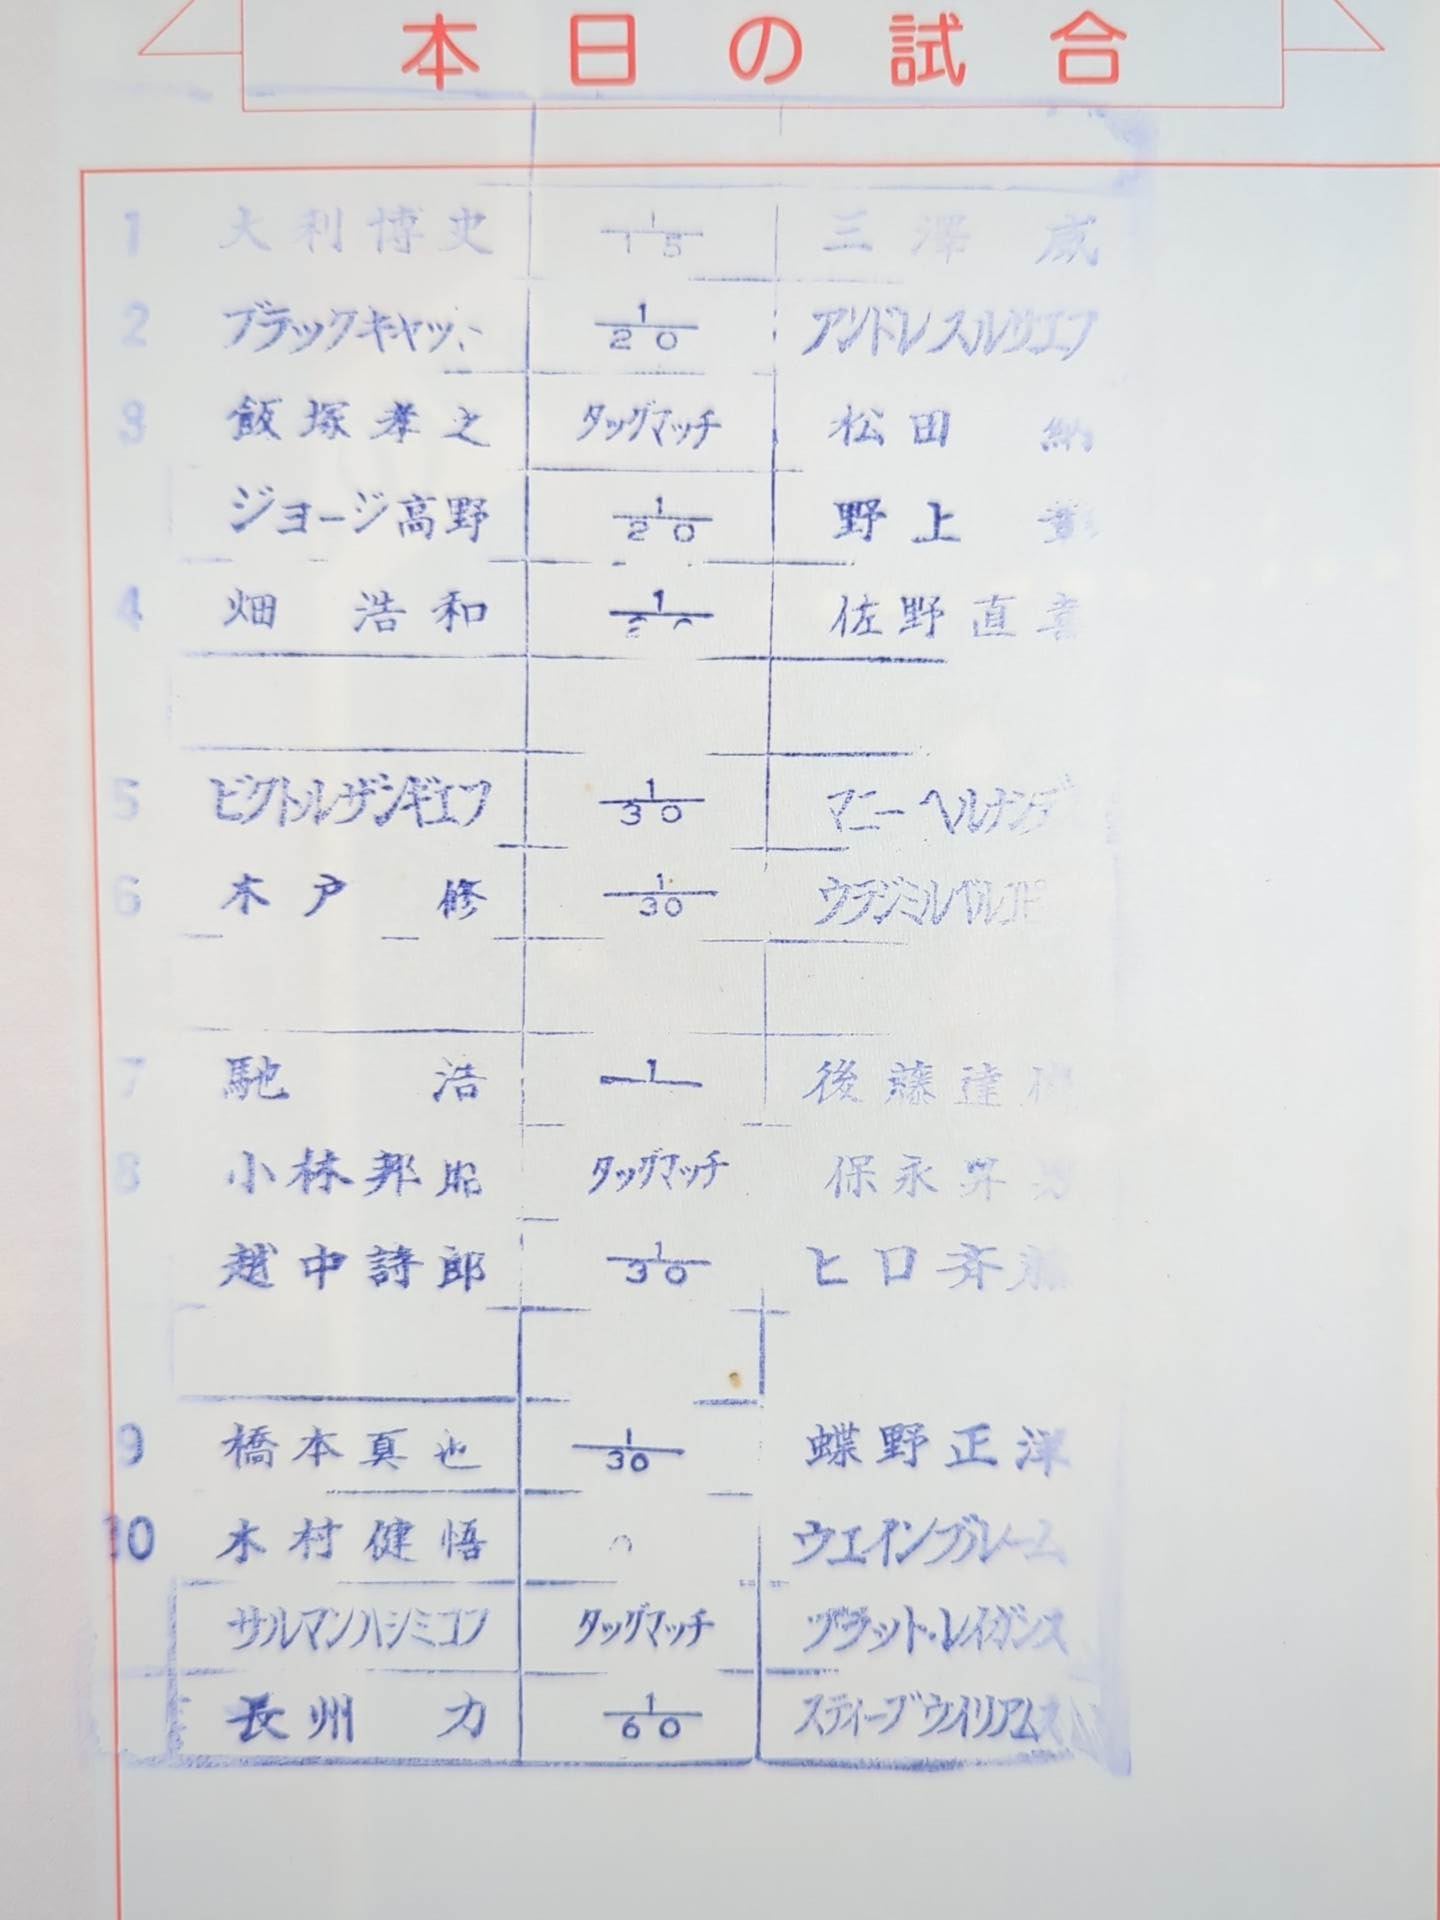 本日の試合
1 大利博史 1/15 三澤 威
2 ブラックキャット 1/20 アンドレスルサエフ
3 飯塚孝之 タッグマッチ 松田 納
ジョージ高野 1/20 野上 彰
4 畑 浩和 1 佐野直喜
5 ビクトルザンギエフ 1/30 マニーヘルナンデ
6 木戸 修 1/30 ウラジミルベルコビ
7 馳 浩 1 後藤達
8 小林邦昭 タッグマッチ 保永昇男
越中詩郎 1/30 ヒロ斉藤
9 橋本真也 1/30 蝶野正洋
10 木村健悟 ウエインブルーム
サルマンハシミコフ タッグマッチ ブラット・レイガンス
長州 力 1/60 スティーブウイリアムス